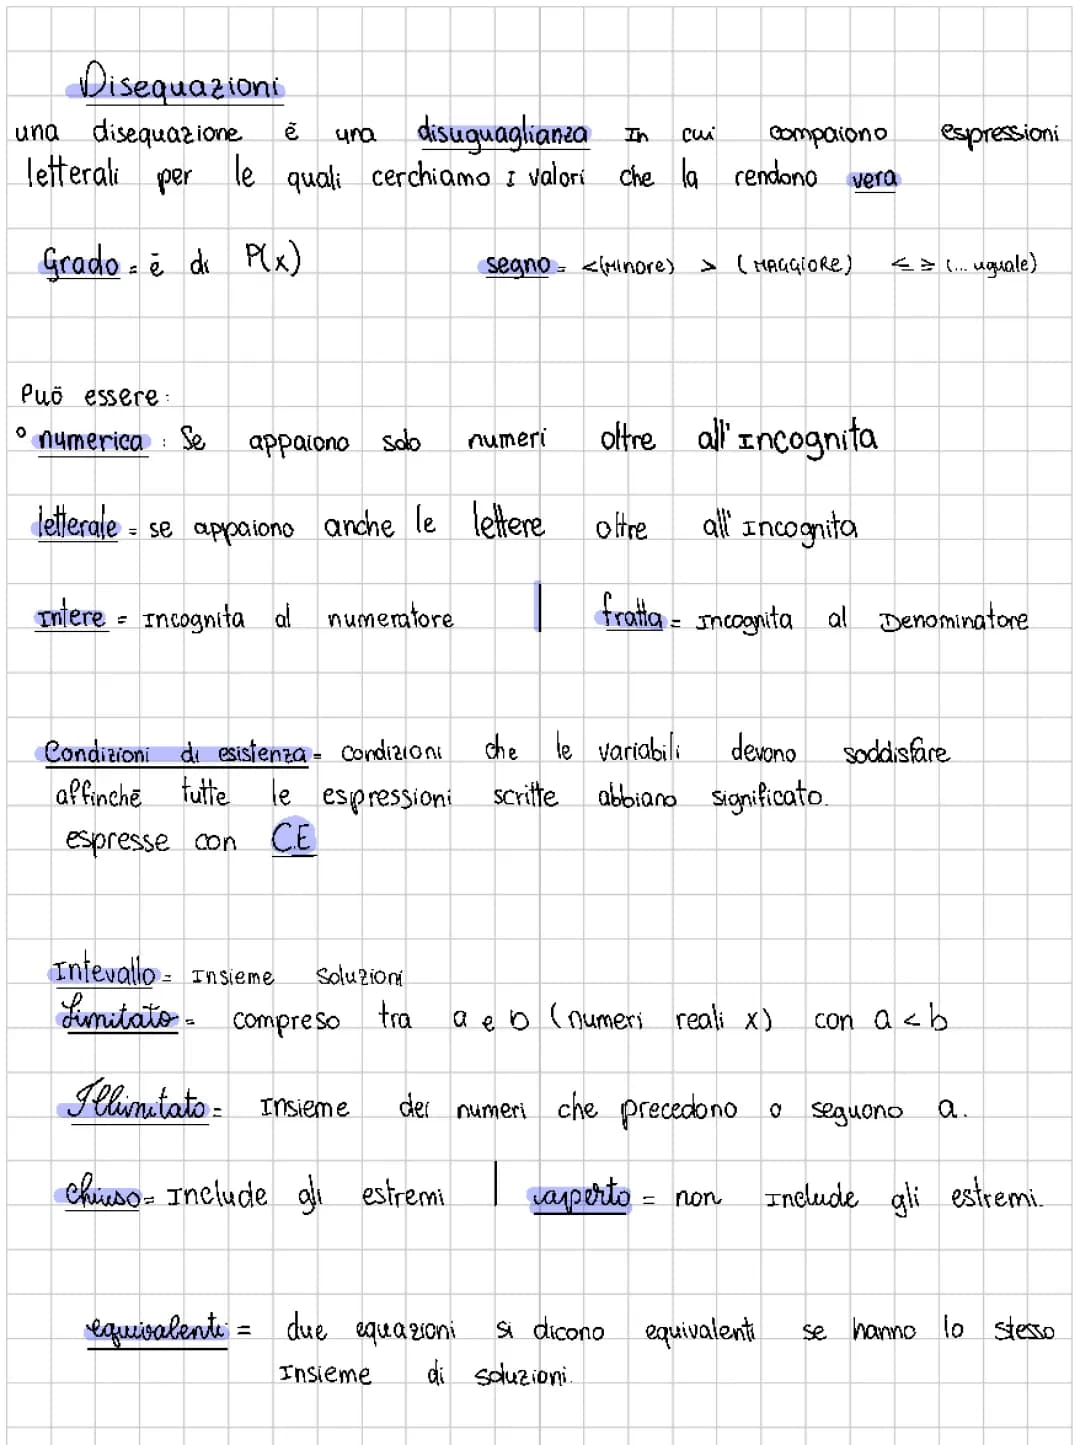 Disequazioni
una disequazione è una disuguaglianza In cui compaiono espressioni
letterali per le quali cerchiamo I valori che la rendono vera
Grado = è di P(x) segno = < (Minore) > (MAGGIORE) ≤ ≥ (... uguale)
Può essere:
° numerica : Se appaiono solo numeri oltre all'Incognita
letterale = se appaiono anche le lettere oltre all'Incognita
Intere = Incognita al numeratore | fratta = Incognita al Denominatore
Condizioni di esistenza = condizioni che le variabili devono soddisfare
affinchè tutte le espressioni scritte abbiano significato.
espresse con C.E
Intevallo = Insieme Soluzioni
Limitato = compreso tra a e b (numeri reali x) con a < b
Illimitato = Insieme dei numeri che precedono o seguono a.
chiuso = Include gli estremi | aperto = non Include gli estremi.
equivalenti = due equazioni si dicono equivalenti se hanno lo stesso
Insieme di soluzioni.